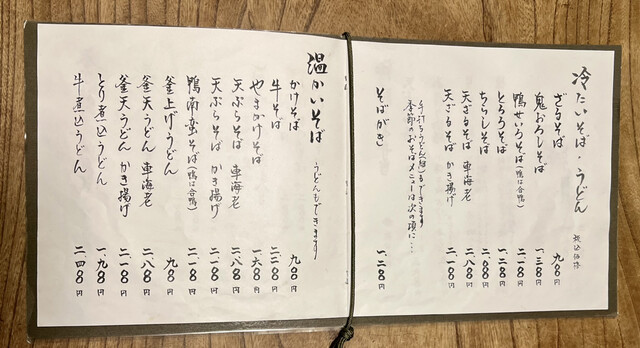 冷たいそば・うどん 税込価格
ざるそば 九〇〇円
鬼おろしそば 一、三〇〇円
鴨せいろそば(鴨は合鴨) 二、一〇〇円
とろろそば 一、二〇〇円
ちらしそば 二、六〇〇円
天ざるそば 車海老 二、八〇〇円
天ざるそば かき揚げ 二、一〇〇円
手打うどん(細)もできます
季節のおそばメニューは次の項に…
そばがき 一、二〇〇円
温かいそば うどんもできます
かけそば 九〇〇円
牛そば 二、二〇〇円
やまかけそば 一、六〇〇円
天ぷらそば 車海老 二、八〇〇円
天ぷらそば かき揚げ 二、一〇〇円
鴨南蛮そば(鴨は合鴨) 二、一〇〇円
釜上げうどん 九〇〇円
釜天うどん 車海老 二、八〇〇円
釜天うどん かき揚げ 二、一〇〇円
とり煮込うどん 一、九〇〇円
牛煮込うどん 二、四〇〇円